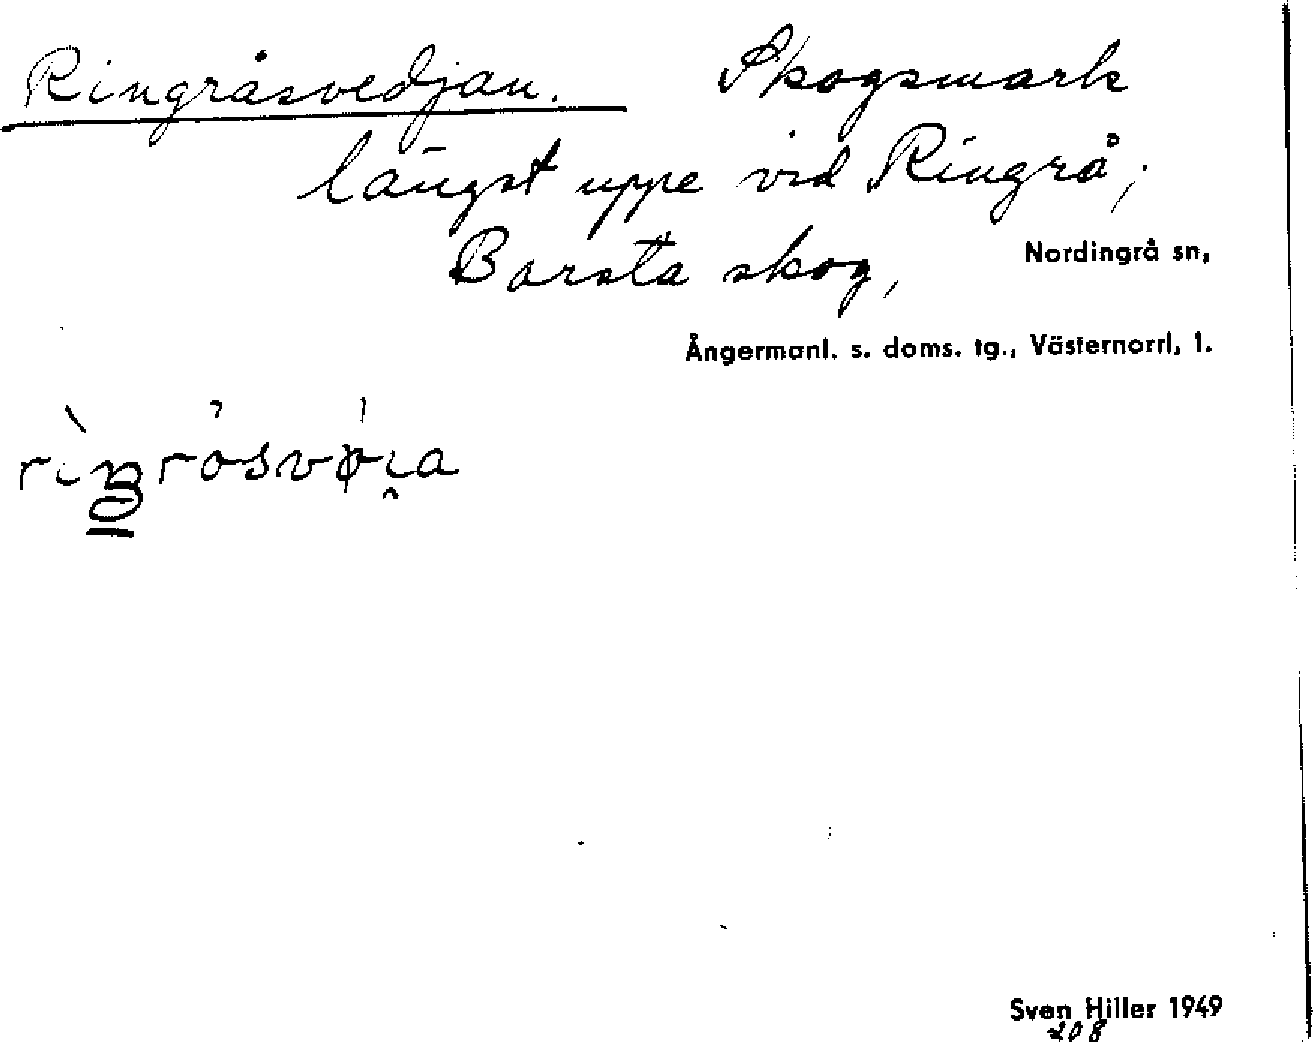 Ringråsvedjan. Skogsmark
längst uppe vid Ringrå,
Barsta skog, Nordingrå sn,
Ångermanl. s. doms. tg., Västernorrl. l.
Sven Hiller 1949
208